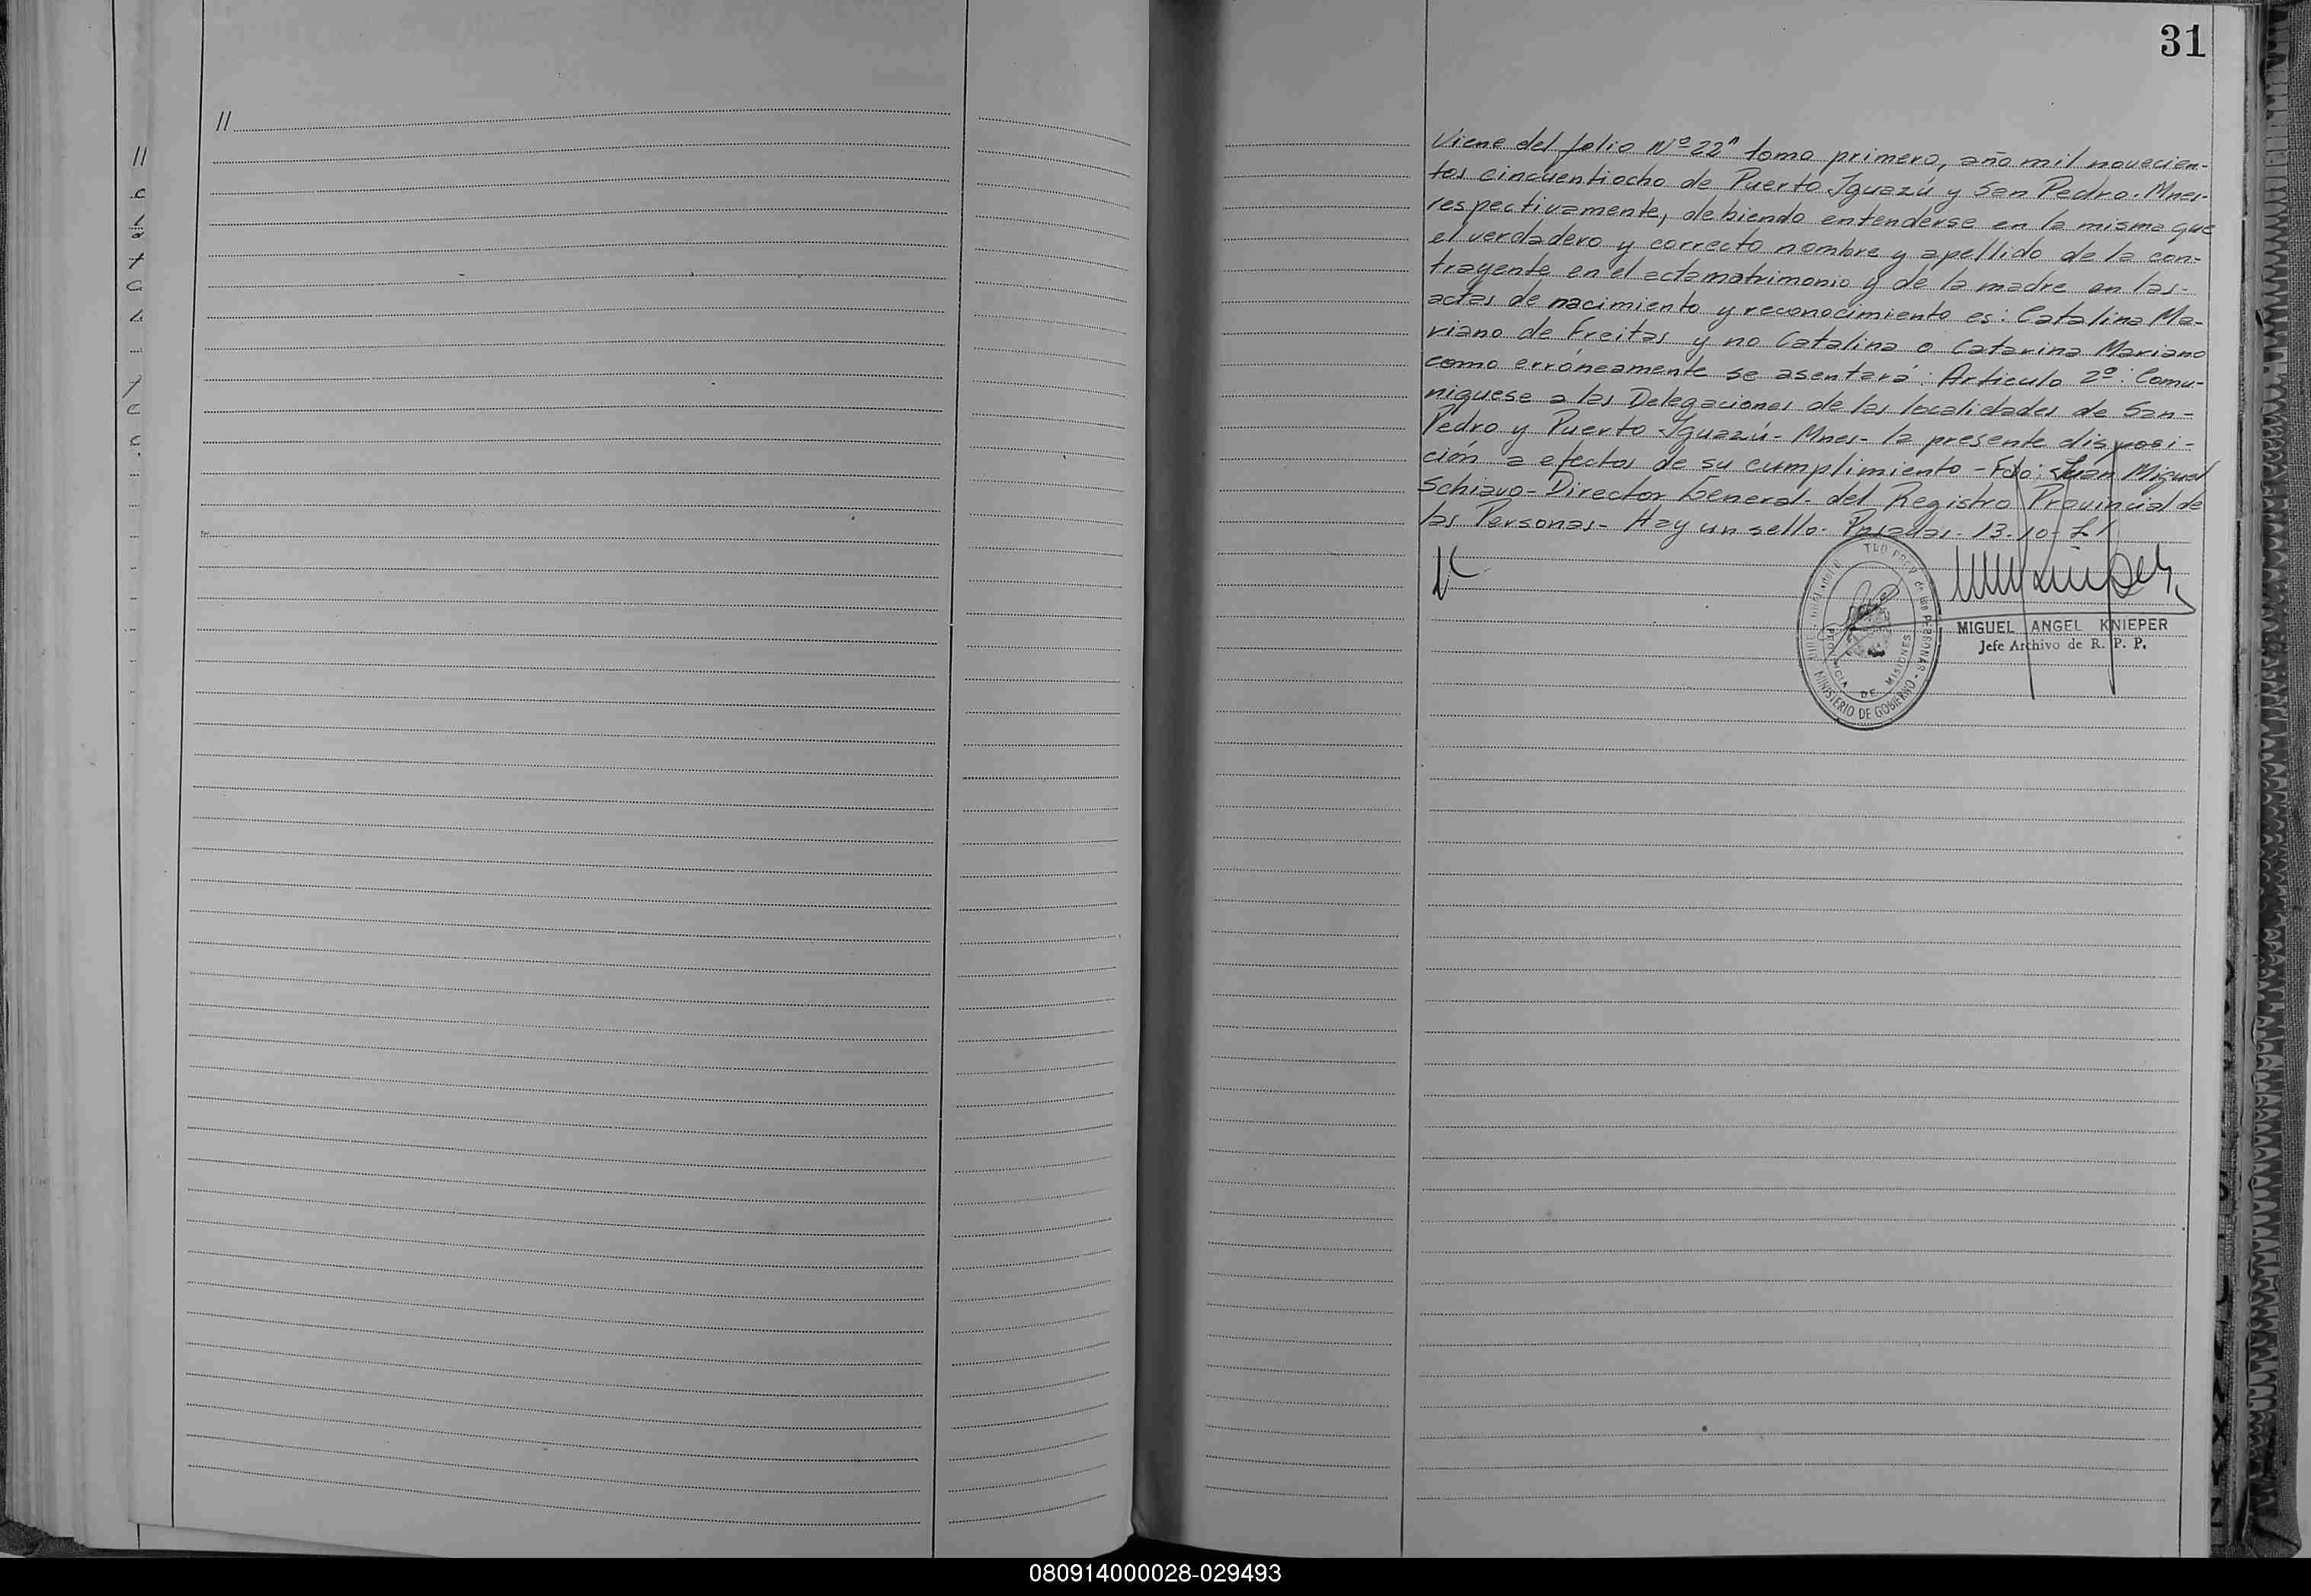 31
//
Viene del folio Nº 22" tomo primero, año mil novecien-
tos cincuentiocho de Puerto Iguazú y San Pedro. Mnes-
respectivamente, debiendo entenderse en la misma que
el verdadero y correcto nombre y apellido de la con-
trayente en el acta matrimonio y de la madre en las-
actas de nacimiento y reconocimiento es: Catalina Ma-
riano de Freitas y no Catalina o Catarina Mariano
como erróneamente se asentará: Articulo 2º: Comu-
niquese a las Delegaciones de las localidades de San-
Pedro y Puerto Iguazú- Mnes- la presente disposi-
ción a efectos de su cumplimiento - Fdo: Juan Miguel
Schiavo- Director General- del Registro Provincial de
las Personas- Hay un sello- Posadas- 13-10-
MIGUEL ANGEL KNIEPER
Jefe Archivo de R. P. P.
de las PERSONAS
PROVINCIA DE MISIONES
MINISTERIO DE GOBIERNO
080914000028-029493